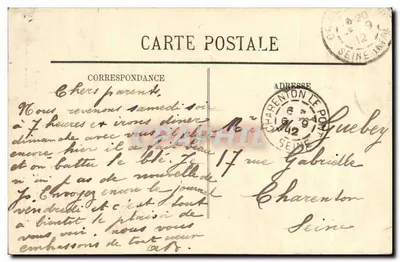 CARTE POSTALE
CORRESPONDANCE
ADRESSE
Chers parents
Nous revenons samedi soir
à 7 heures et irons dîner
dimanche avec vous il
encore hier il a
et on battu le blé Je
n'ai pas de nouvelle de
Jo. Envoyez encore le journal
vendredi et c'est tout
à bientôt le plaisir de
vous voir. nous vous
embrassons de tout cœur
CHARENTON LE PONT
SEINE
Mr Guebey
17 rue Gabrielle
Charenton
Seine